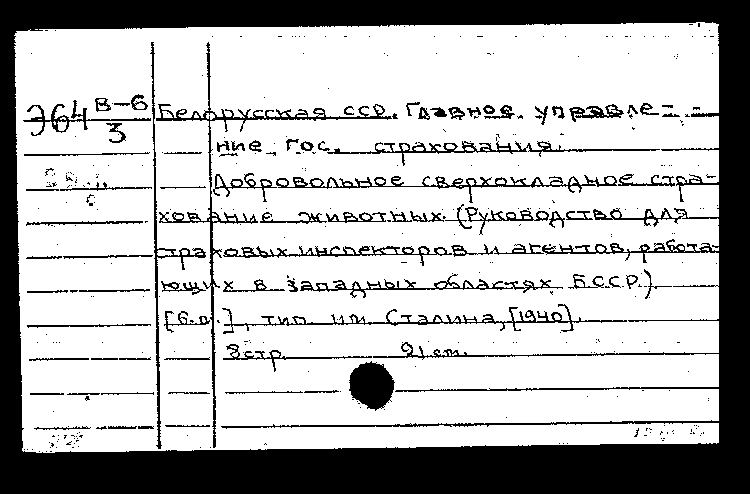 Э64 В-6/3 Белорусская ССР. Главное управле-
ние Гос. страхования.
Добровольное сверхокладное стра-
хование животных. (Руководство для
страховых инспекторов и агентов, работа-
ющих в западных областях Б.С.С.Р.).
[б.м.], тип. им. Сталина, [1940].
8 стр. 21 см.